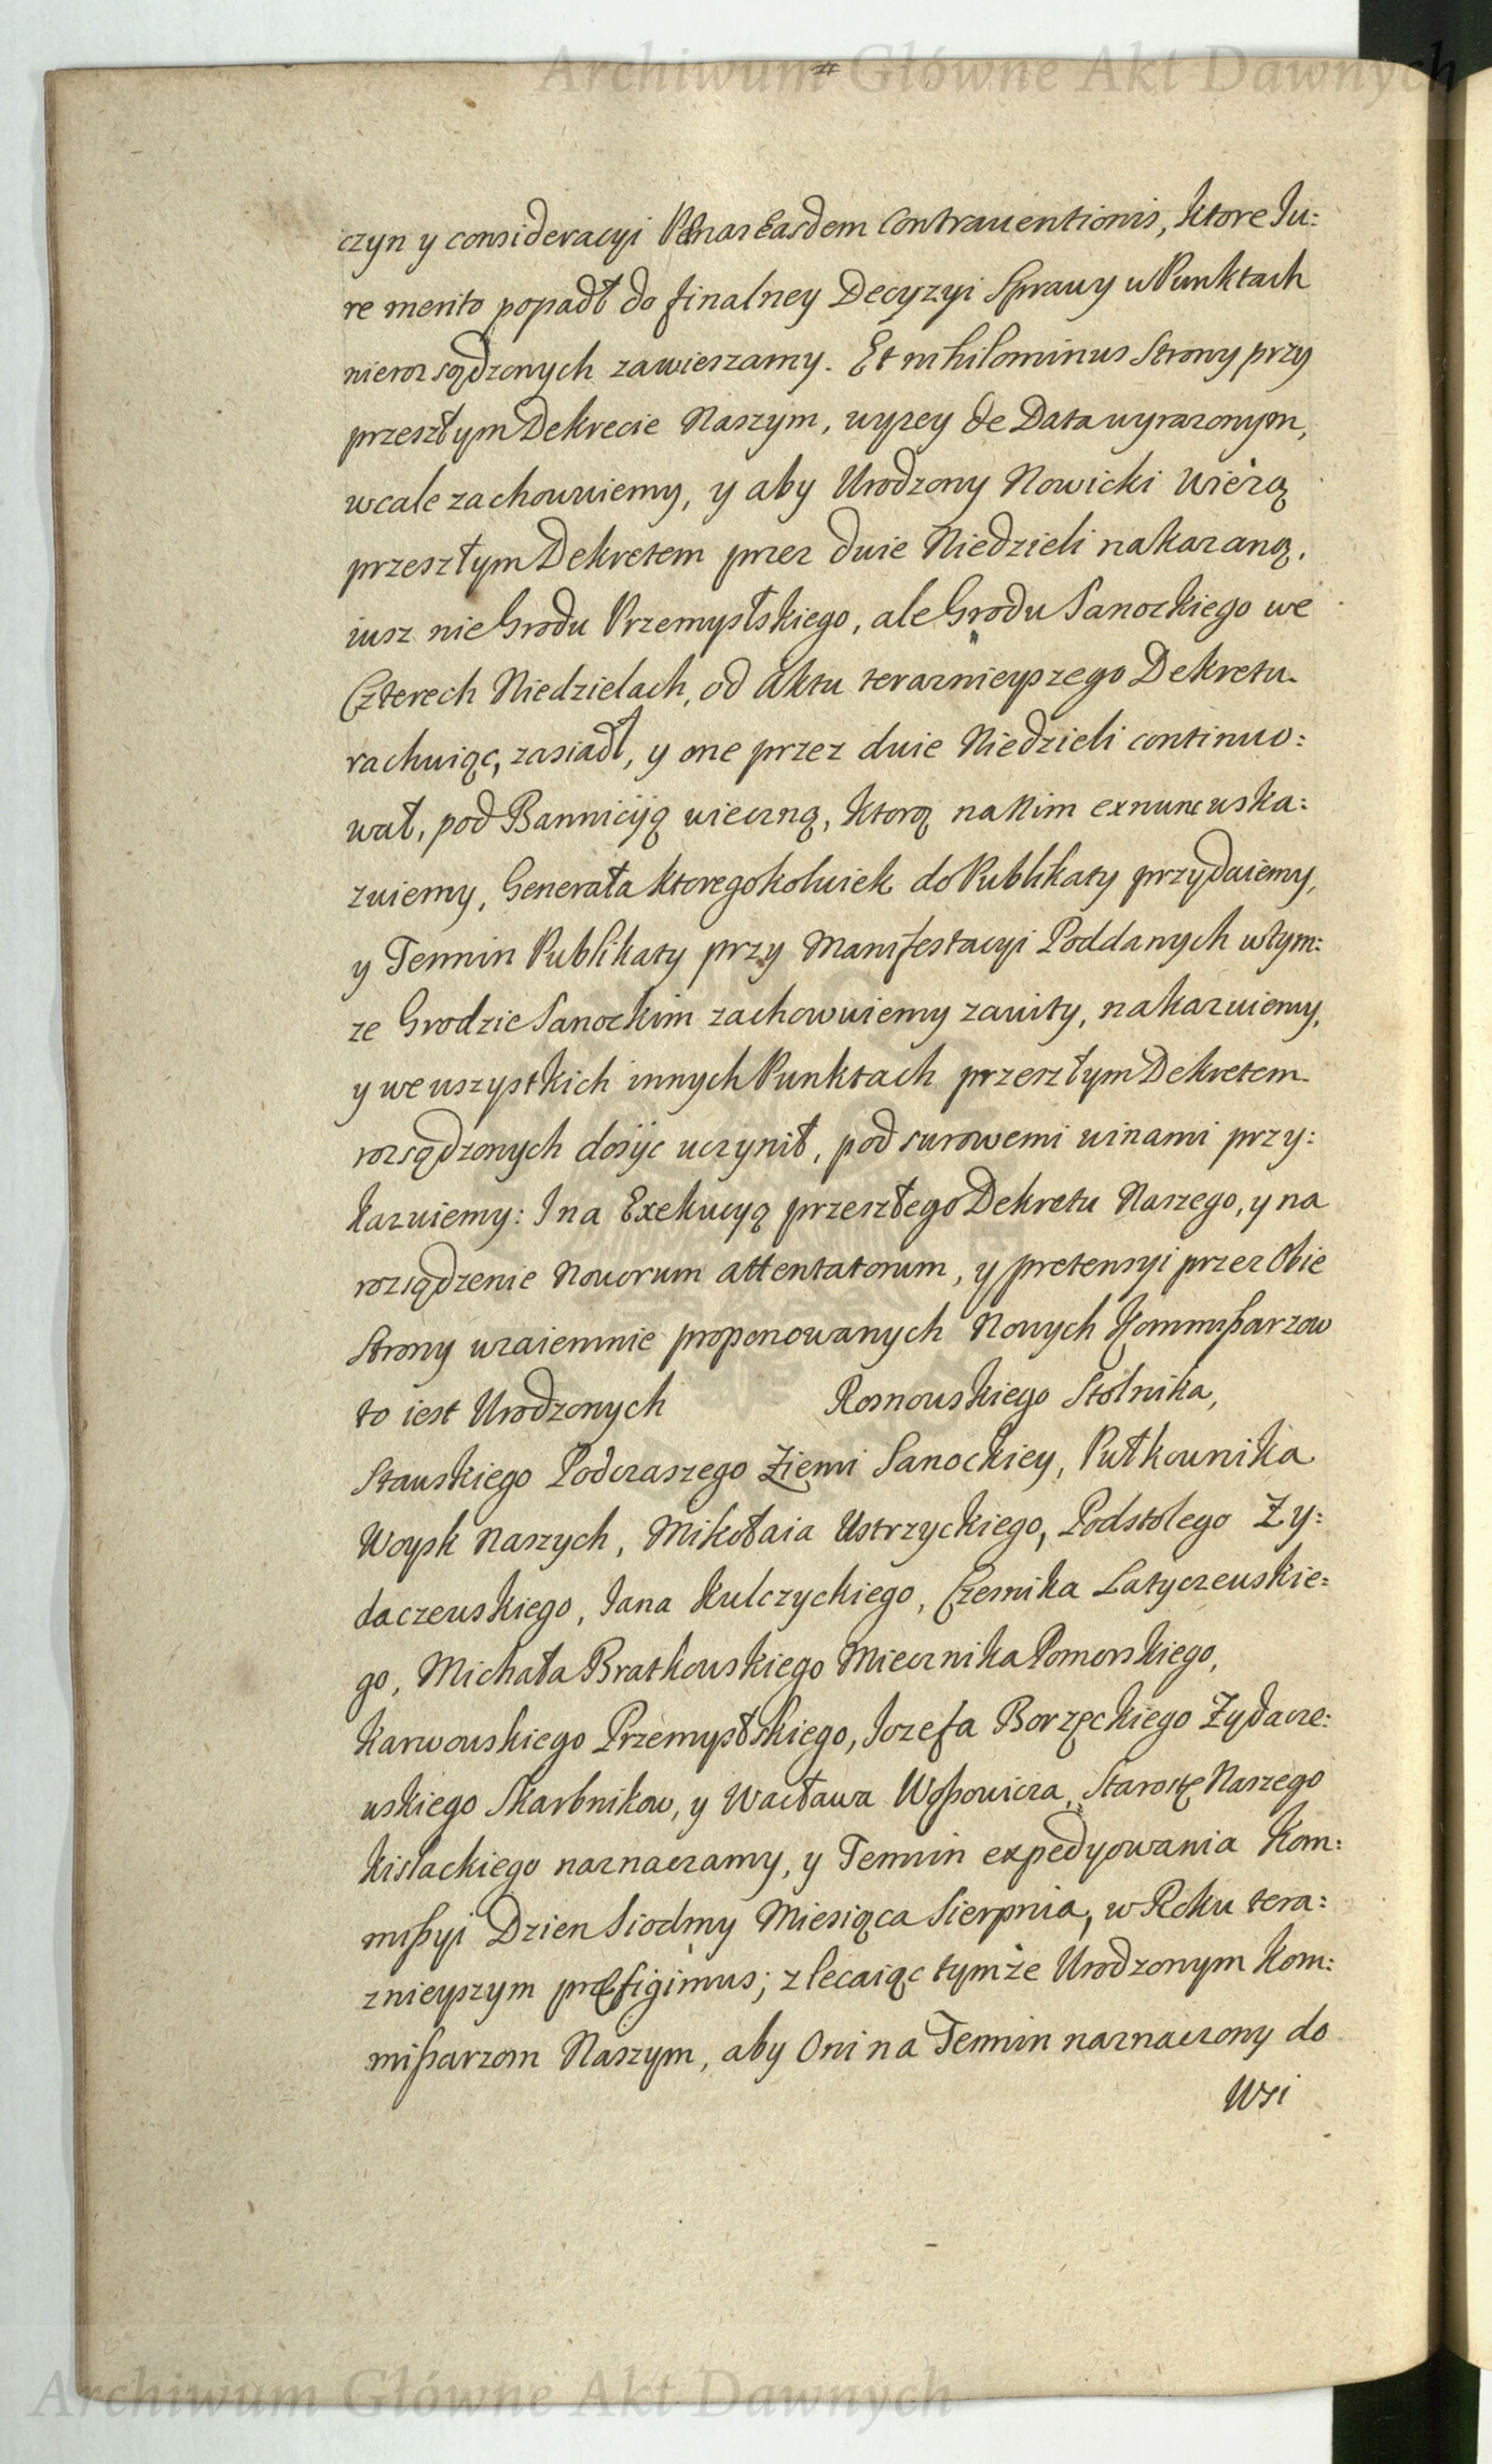 Archiwum Główne Akt Dawnych
czyn y consideracyi Pænas Easdem Contrauentionis, ktore Iu:
re merito popadł do finalney Decyzyi Sprawy w Punktach
nierozsądzonych zawieszamy. Et nihilominus Strony przy
przeszłym Dekrecie Naszym, wyzey de Data wyrazonym,
wcale zachowuiemy, y aby Urodzony Nowicki Wieżą
przeszłym Dekretem przez dwie Niedzieli nakazaną,
iusz nie Grodu Przemysłskiego, ale Grodu Sanockiego we
Czterech Niedzielach, od Aktu teraznieyszego Dekretu
rachuiąc, zasiadł, y one przez dwie Niedzieli continuo:
wał, pod Bannicyią wieczną, ktorą na Nim exnunc wska:
zuiemy, Generała ktoregokolwiek do Publikaty przydaiemy,
y Termin Publikaty przy Manifestacyi Poddanych w tym:
ze Grodzie Sanockim zachowuiemy zawity, nakazuiemy,
y we wszystkich innych Punktach przeszłym Dekretem
rozsądzonych dosyc uczynił, pod surowemi winami przy:
kazuiemy: I na Exekucyą przeszłego Dekretu Naszego, y na
rozsądzenie Novorum attentatorum, y pretensyi przez Obie
Strony wzaiemnie proponowanych Nowych Kommißarzow
to iest Urodzonych Rosnowskiego Stolnika,
Stawskiego Podczaszego Ziemi Sanockiey, Pułkownika
Woysk Naszych, Mikołaia Ustrzyckiego, Podstolego Zy:
daczewskiego, Iana Kulczyckiego, Czesnika Latyczewskie:
go, Michała Bratkowskiego Miecznika Pomorskiego,
Karwowskiego Przemysłskiego, Iozefa Borzęckiego Zydacze:
wskiego Skarbnikow, y Wacława Woßowicza, Starostę Naszego
Kislackiego naznaczamy, y Termin expedyowania Kom:
mißyi Dzien Siodmy Miesiąca Sierpnia, w Roku tera:
znieyszym præfigimus; zlecaiąc tymże Urodzonym Kom:
mißarzom Naszym, aby Oni na Termin naznaczony do
Wsi
Archiwum Główne Akt Dawnych